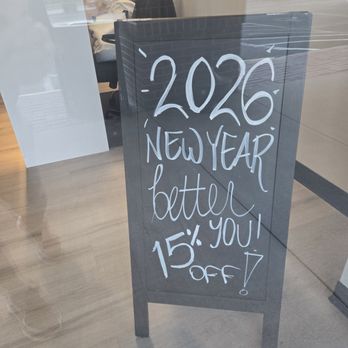 2026
NEW YEAR
better
YOU!
15%
OFF!